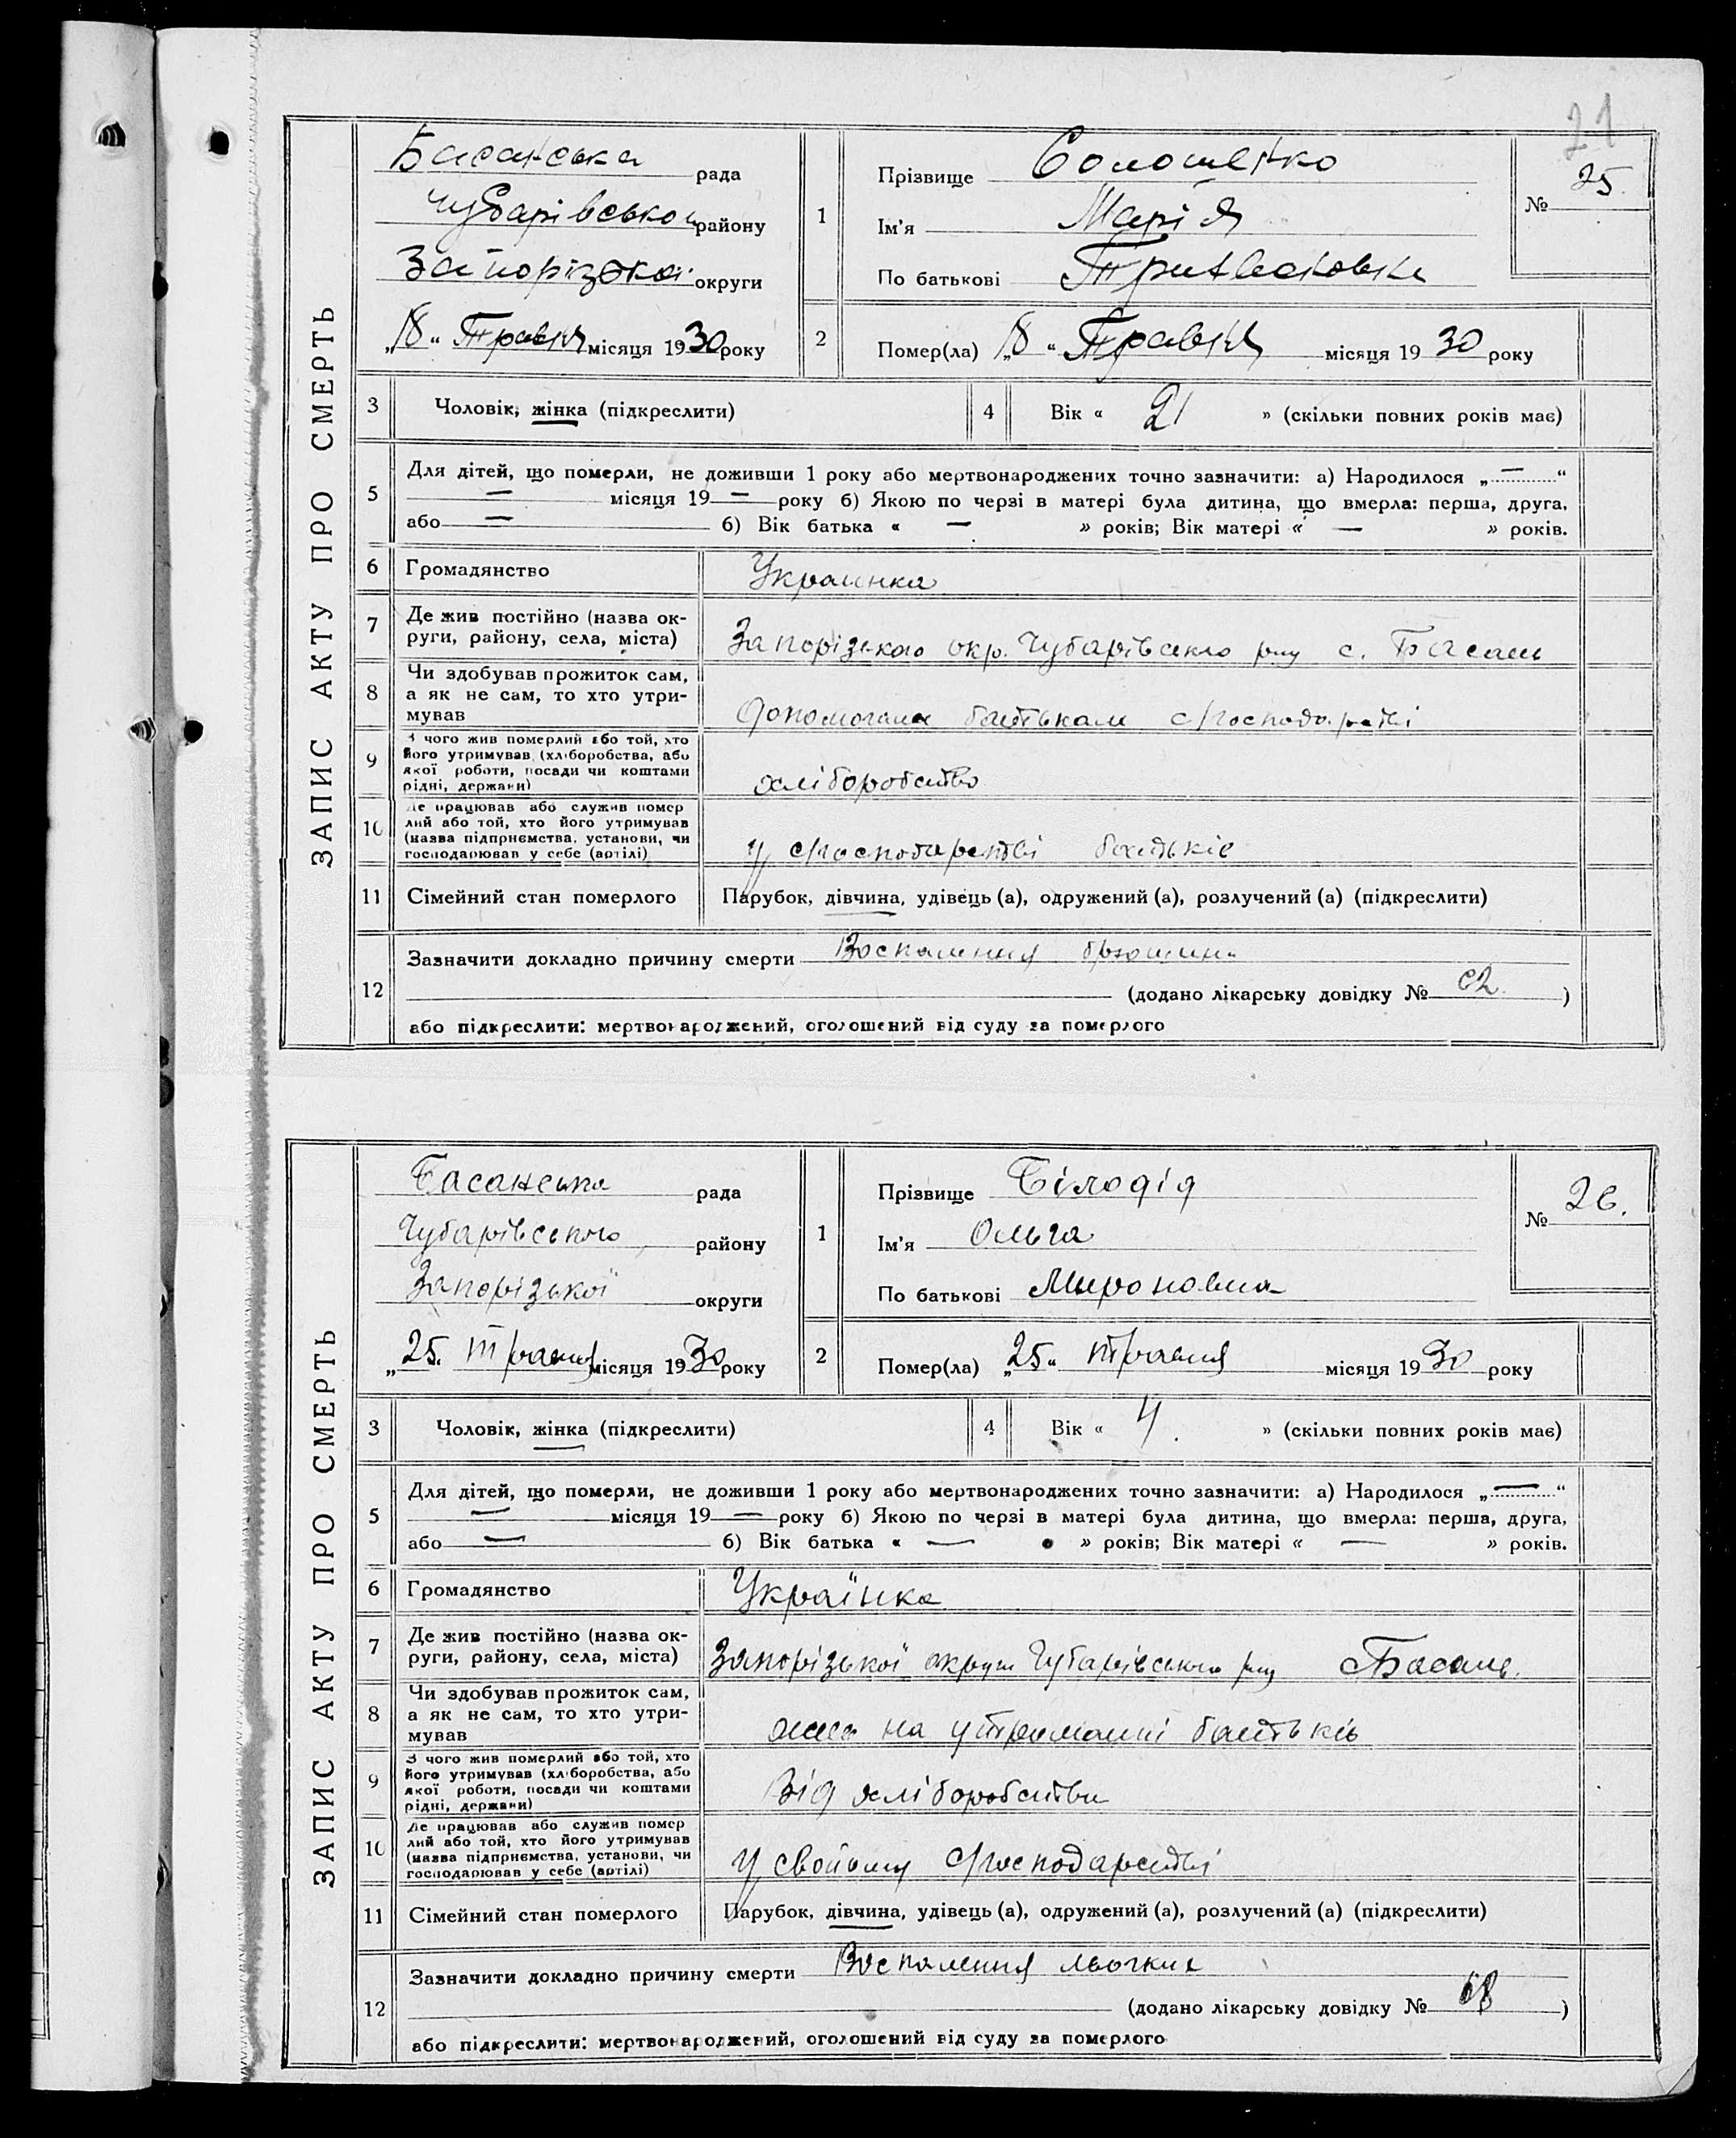 21
ЗАПИС АКТУ ПРО СМЕРТЬ
Басанська рада
Чубарівського району
Запорізької округи
„18“ Травня місяця 1930 року
1
Прізвище Солошенко
Ім'я Марія
По батькові
№ 25.
2
Помер(ла) „18“ Травня місяця 1930 року
3 Чоловік, жінка (підкреслити)
4 Вік « 21 » (скільки повних років має)
5 Для дітей, що померли, не доживши 1 року або мертвонароджених точно зазначити: а) Народилося „—“
— місяця 19 — року б) Якою по черзі в матері була дитина, що вмерла: перша, друга,
або — б) Вік батька « — » років; Вік матері « — » років.
6 Громадянство Украинка
7 Де жив постійно (назва ок-
руги, району, села, міста) Запорізького окр. Чубарівського р-ну с. Басань
8 Чи здобував прожиток сам,
а як не сам, то хто утри-
мував допомогала батькам с/господарстві
9 З чого жив померлий або той, хто
його утримував (хліборобства, або
якої роботи, посади чи коштами
рідні, держави) хліборобство
10 Де працював або служив помер
лий або той, хто його утримував
(назва підприємства, установи, чи
господарював у себе (артілі) у с/господарстві батьків
11 Сімейний стан померлого Парубок, дівчина, удівець (а), одружений (а), розлучений (а) (підкреслити)
12 Зазначити докладно причину смерти Воспалення
(додано лікарську довідку № 62 )
або підкреслити: мертвонароджений, оголошений від суду за померлого
ЗАПИС АКТУ ПРО СМЕРТЬ
Басанська рада
Чубарівського району
Запорізької округи
„25“ травня місяця 1930 року
1
Прізвище Білодід
Ім'я Ольга
По батькові Мироновна
№ 26.
2
Помер(ла) „25“ травня місяця 1930 року
3 Чоловік, жінка (підкреслити)
4 Вік « 4. » (скільки повних років має)
5 Для дітей, що померли, не доживши 1 року або мертвонароджених точно зазначити: а) Народилося „—“
— місяця 19 — року б) Якою по черзі в матері була дитина, що вмерла: перша, друга,
або — б) Вік батька « — » років; Вік матері « — » років.
6 Громадянство Українка
7 Де жив постійно (назва ок-
руги, району, села, міста) Запорізької округи Чубарівського р-ну с Басань.
8 Чи здобував прожиток сам,
а як не сам, то хто утри-
мував жила на утриманні батьків
9 З чого жив померлий або той, хто
його утримував (хліборобства, або
якої роботи, посади чи коштами
рідні, держави) Від хліборобства
10 Де працював або служив помер
лий або той, хто його утримував
(назва підприємства, установи, чи
господарював у себе (артілі) У своїому с/господарстві
11 Сімейний стан померлого Парубок, дівчина, удівець (а), одружений (а), розлучений (а) (підкреслити)
12 Зазначити докладно причину смерти Воспалення льогких
(додано лікарську довідку № 68 )
або підкреслити: мертвонароджений, оголошений від суду за померлого